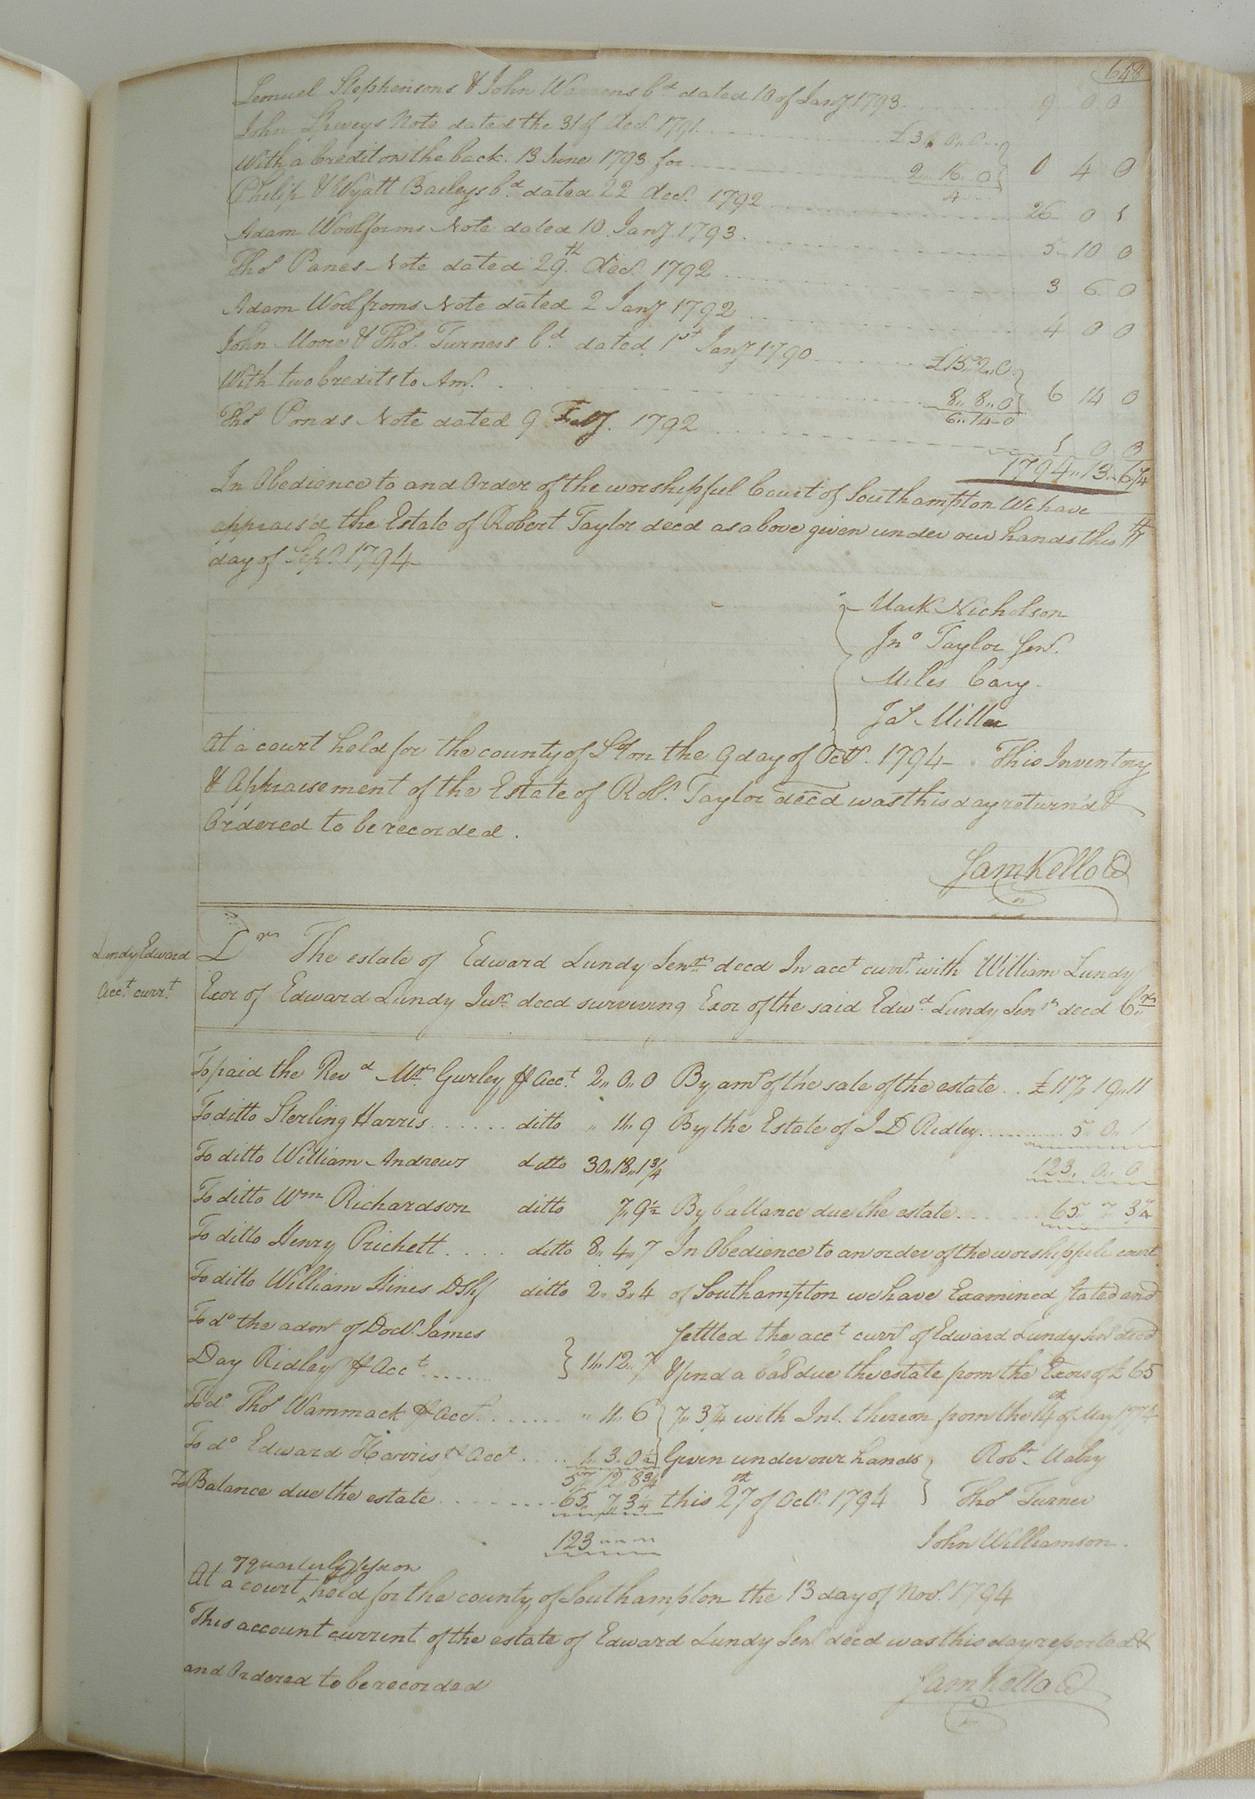 648
Lemuel Stephensons & John Warrens bd dated 10 of Jany 1793 9 0 0
John Note dated the 31 of Decr. 1791 £3 0 0
With a Credit on the back. 13 June 1793 for 2 16 0 0 4 0
4
Philip & Wyatt Baileys bd. dated 22 Decr. 1792 26 0 1
Adam Woolfroms Note dated 10 Jany 1793. 5 10 0
Thos Panes Note dated 29th. Decr. 1792 3 6 0
Adam Woolfroms Note dated 2 Jany 1792 4 0 0
John Moore & Thos. Turners bd. dated 1st Jany 1790 £15 2 0
With two Credits to Amt. 8 8 0 6 14 0
6 14 0
Thos Ponds Note dated 9 Feby. 1792 1 0 3
1794 13 6 1/4
In Obedience to and Order of the worshipful Court of Southampton We have
apprais'd the Estate of Robert Taylor decd as above given under our hands this
day of Sepr. 1794
Mark Nicholson
Jno Taylor Senr.
Miles Cary
Jas Miller
At a court held for the county of Shton the 9 day of Octr. 1794 This Inventory
& Appraisement of the Estate of Robt. Taylor decd was this day return'd &
Ordered to be recorded.
Saml Kello C
Lundy Edward
Acct. currt.
Dr The estate of Edward Lundy Senr decd In acct currt. with William Lundy
Exor of Edward Lundy Junr decd surviving Exor of the said Edwd Lundy Senr decd Cr
To paid the Revd Mr Gurley p Acct. 2 0 0 By amt of the sale of the estate £117 19 11
To ditto Sterling Harris ditto 11 9 By the Estate of J D Ridley 5 0 1
To ditto William Andrews ditto 30 18 1 3/4 123 0 0
To ditto Wm Richardson ditto 7 9 1/2 By ballance due the estate 65 7 3 1/4
To ditto Henry Prichett ditto 8 4 7 In Obedience to an order of the worshipfule court
To ditto William Hines DShf ditto 2 3 4 of Southampton we have Examined stated and
To do the admr of Doctr. James settled the acct currt of Edward Lundy Senr decd
Day Ridley p Acct 11 12 7 & find a balc due the estate from the Exors of £65
To do. Thos Wammack p Acct. 11 6 7 3 1/4 with Int. thereon from the 14th of May 1774
To do Edward Harris p Acct 1 3 0 1/2 Given under our hands Robt Mabry
57 12 8 3/4
To Balance due the estate 65 7 3 1/4 this 27th of Octr. 1794 Thos Turner
123 John Williamson.
quarterly session
At a court held for the county of Southampton the 13 day of Novr. 1794
This account current of the estate of Edward Lundy Senr decd was this day reported &
and Ordered to be recorded
Saml Kello C